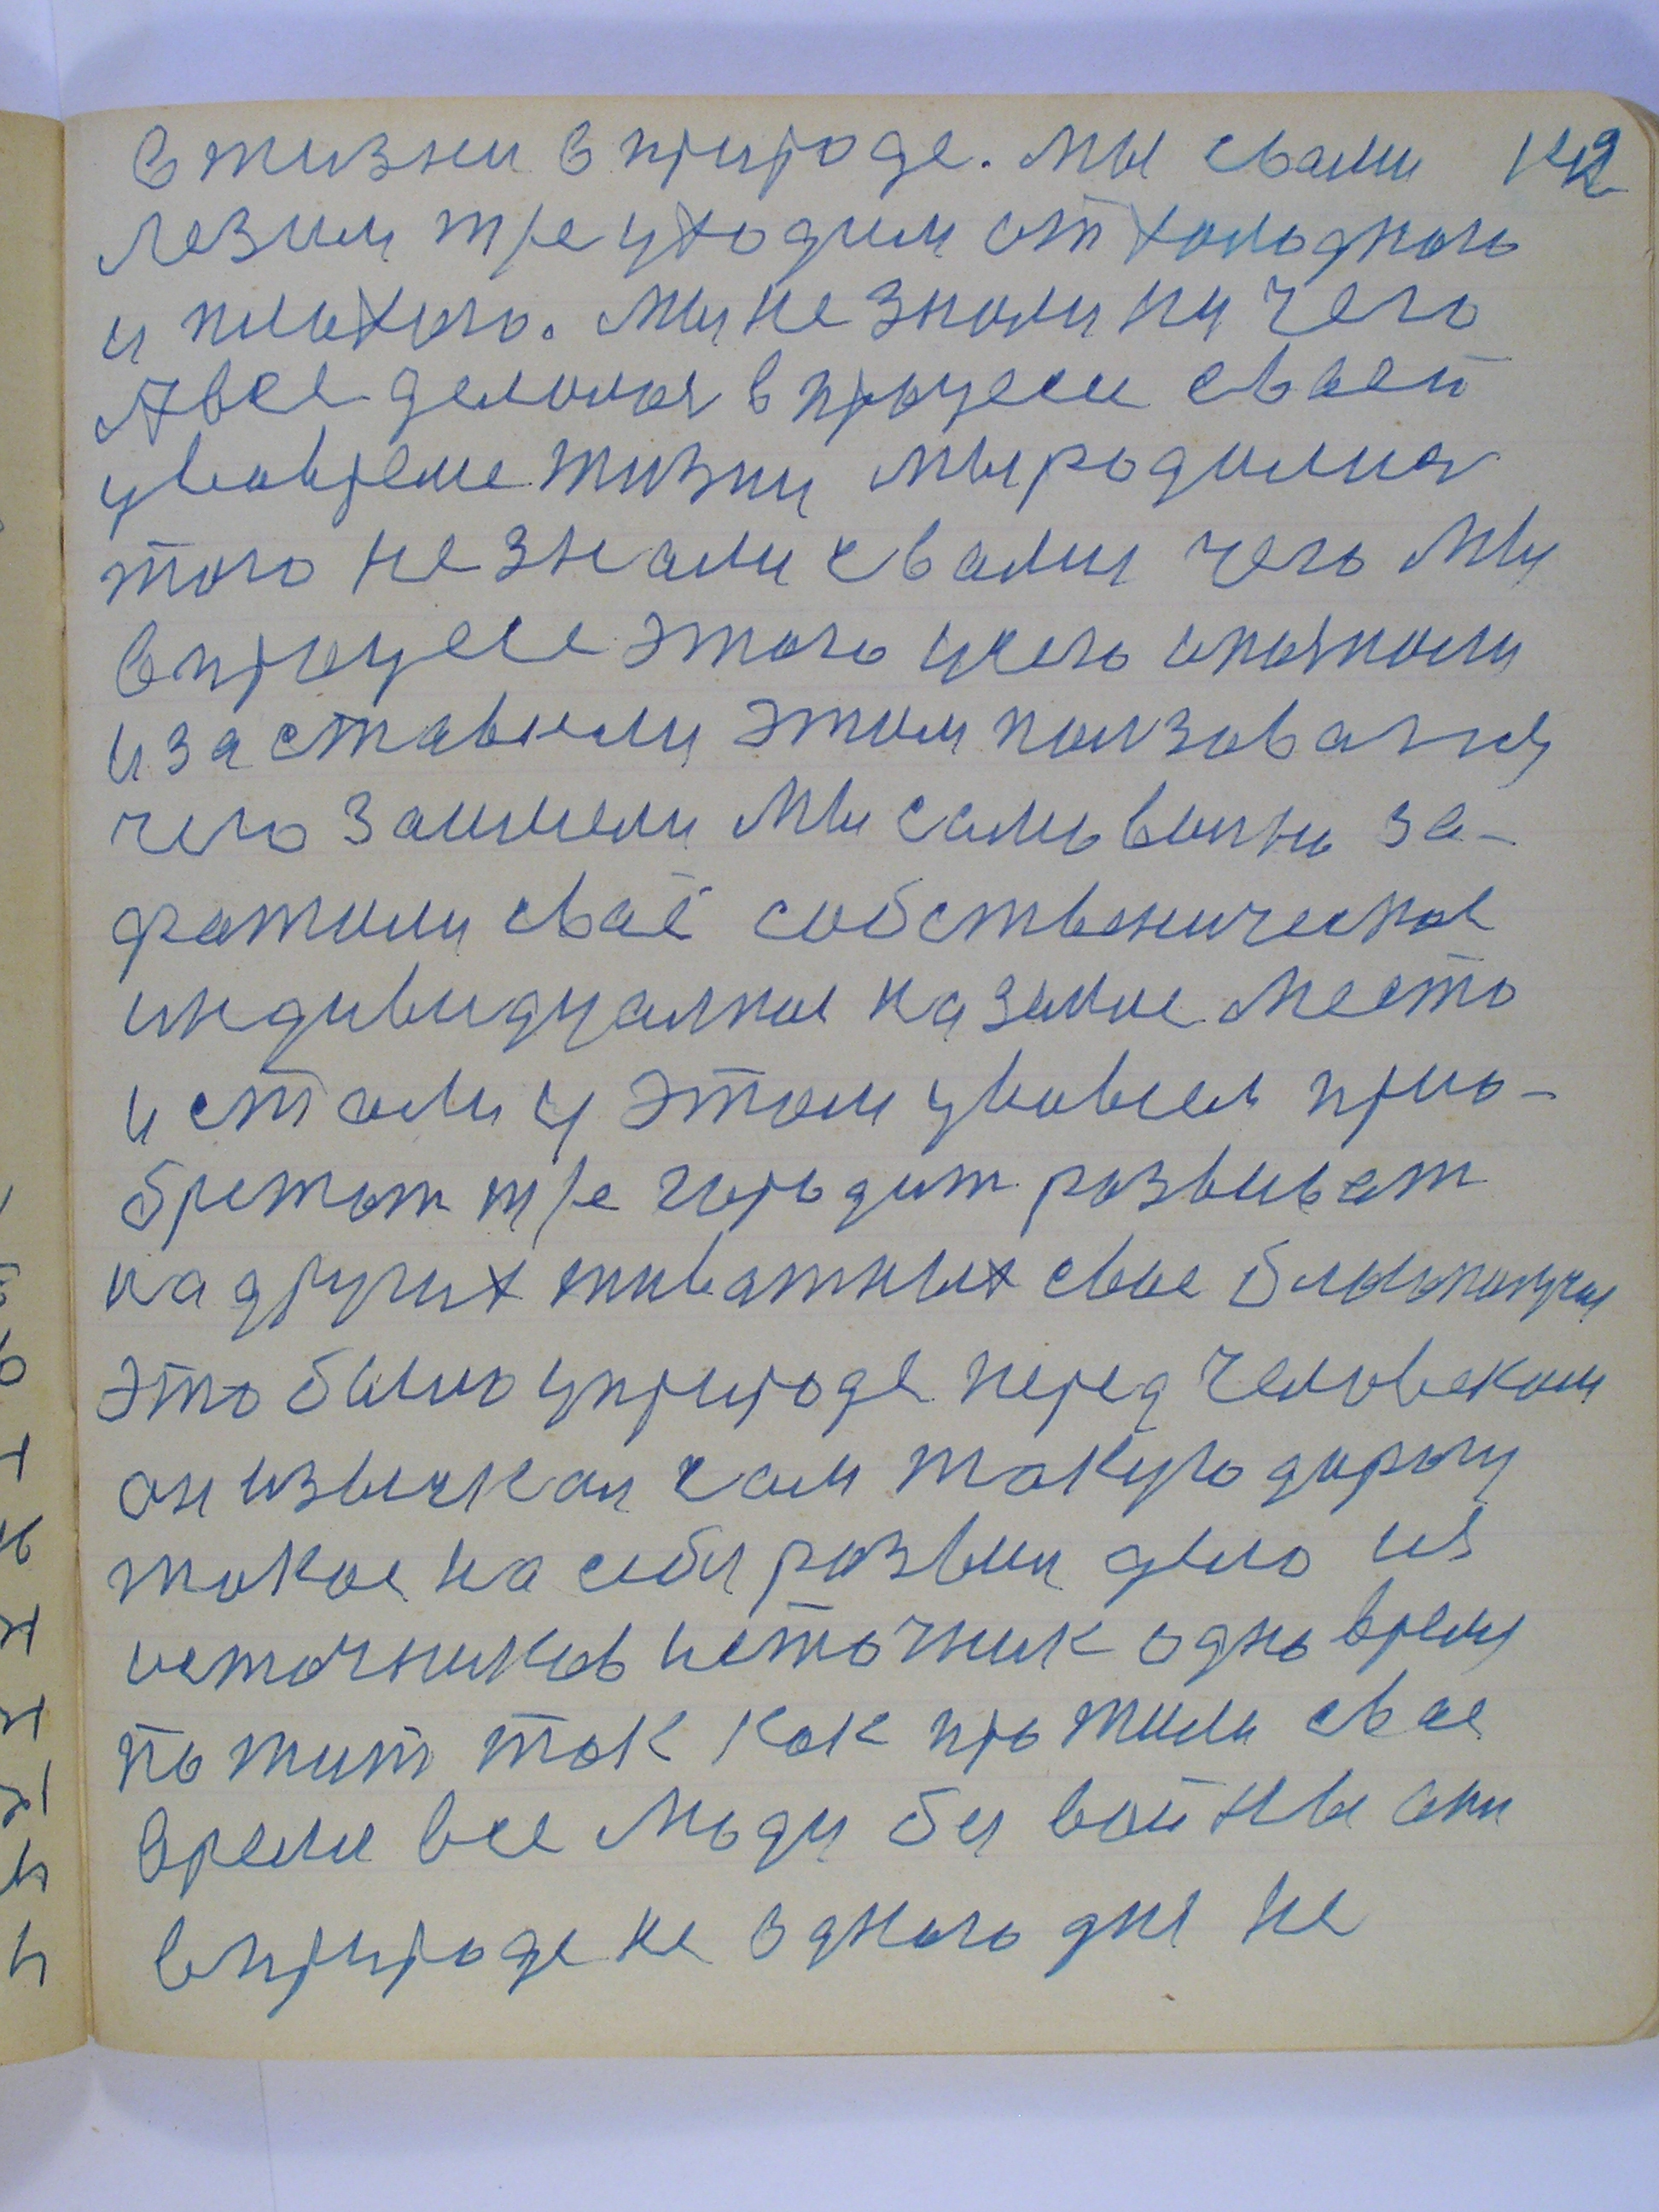 в жизни в природе. мы с вами
лезим т/е уходим от холодного
и плохого. Мы не знали ни чего
А все делалося в процесе сваей
у вовреме жизни мы родилися
того не знали с вами чего мы
в процесе этого усего опознали
и заставели этим ползоватся
чего заимели мы самовольно за-
фатили сваё собственическое
индивидуалное на земле место
и стали у этом уповсем прио-
бретат т/е городит развиват
на других живатных свое благополучия
это было у природе перед человеком
он изыскал сам такую дорогу
такое на себя развил дело из
источников источник одно время
пожит так как прожили свае
време все люди бы войны они
в природе не одного дня не